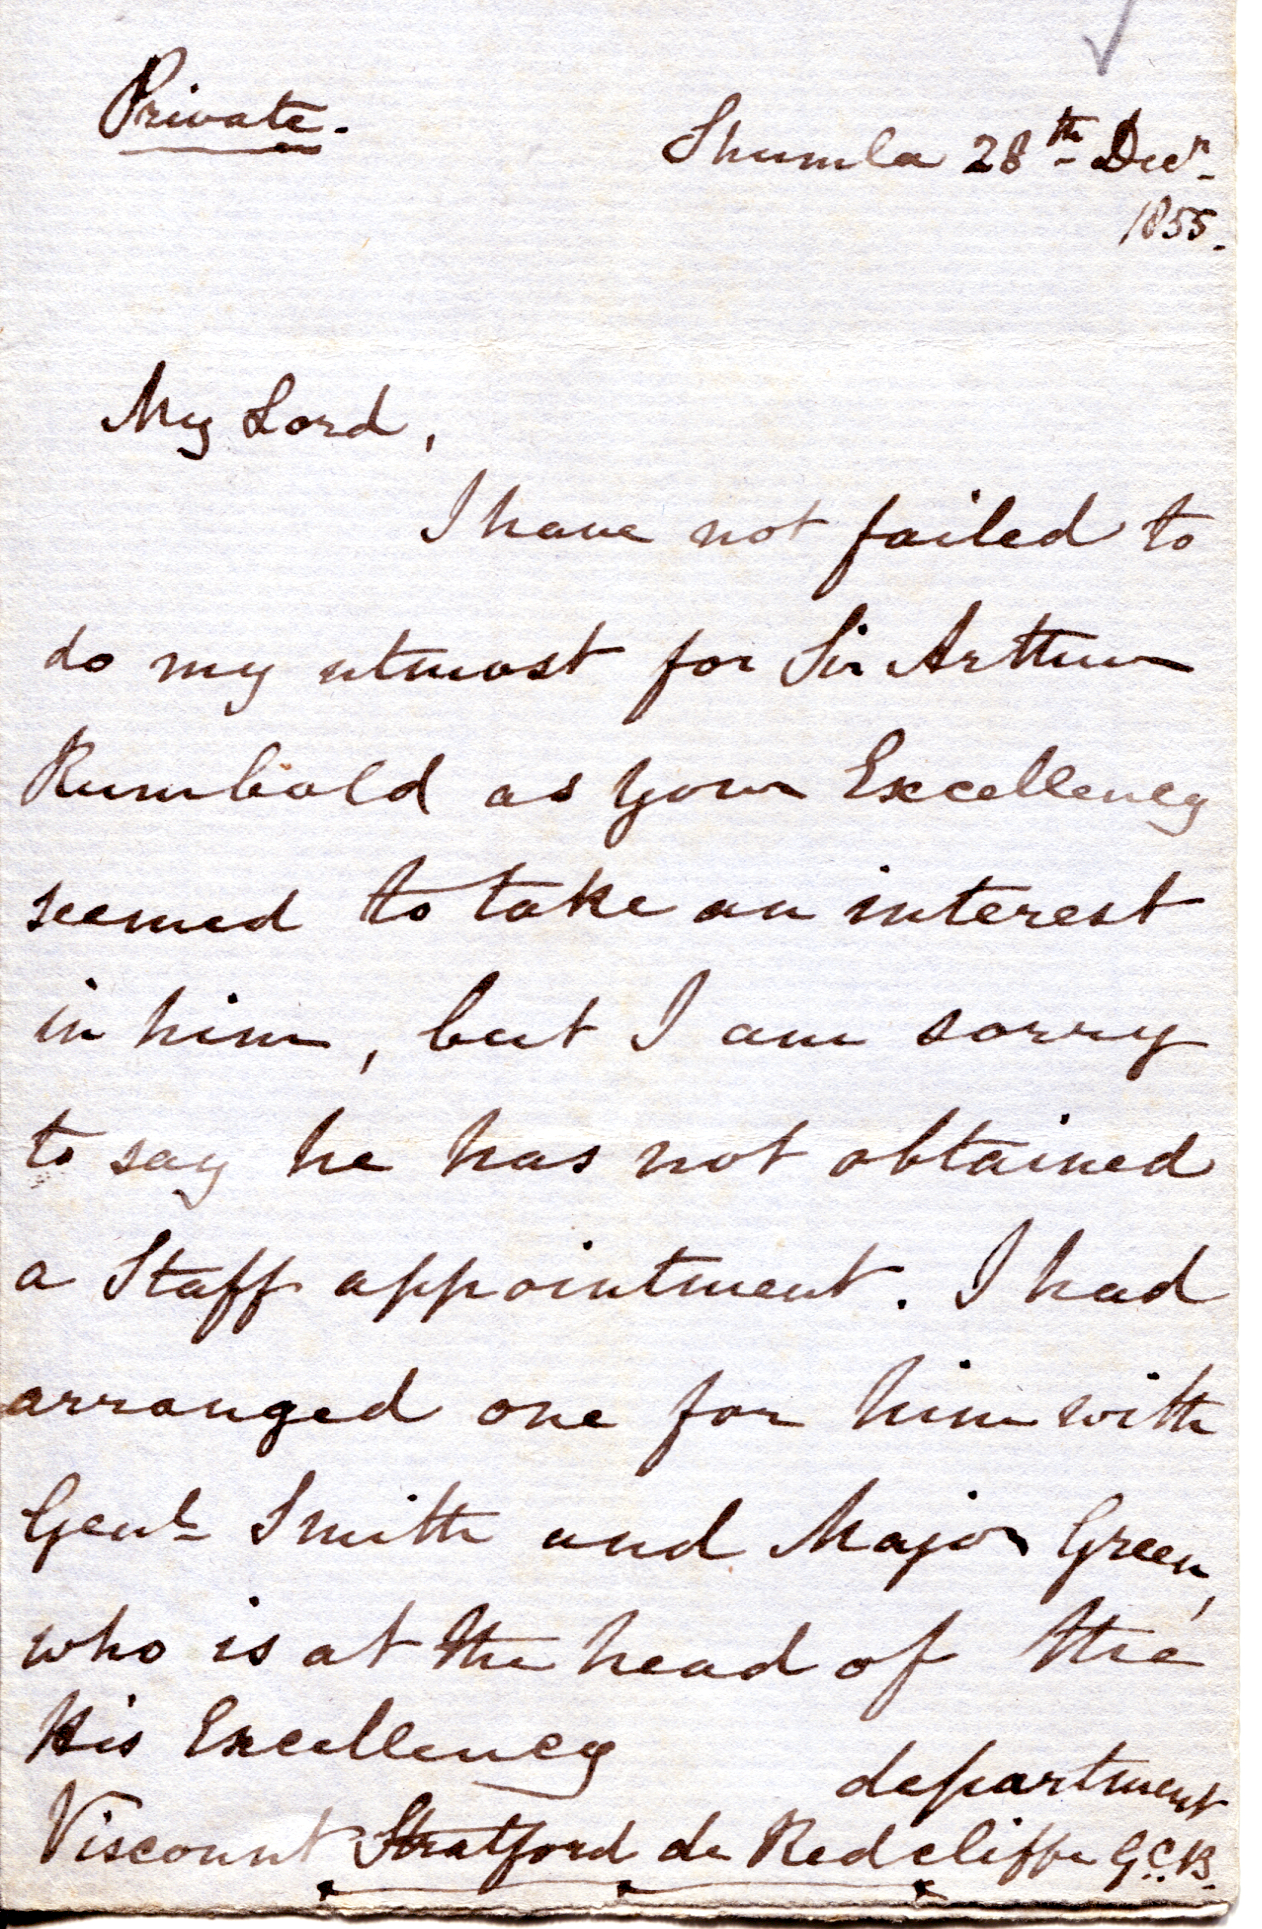 Private.
Shumla 28th Decr.
1855.
My Lord,
I have not failed to
do my utmost for Sir Arthur
Rumbold as your Excellency
seemed to take an interest
in him, but I am sorry
to say he has not obtained
a Staff appointment. I had
arranged one for him with
Genl Smith and Major Green,
who is at the head of the
department
His Excellency
Viscount Stratford de Redcliffe G.C.B.